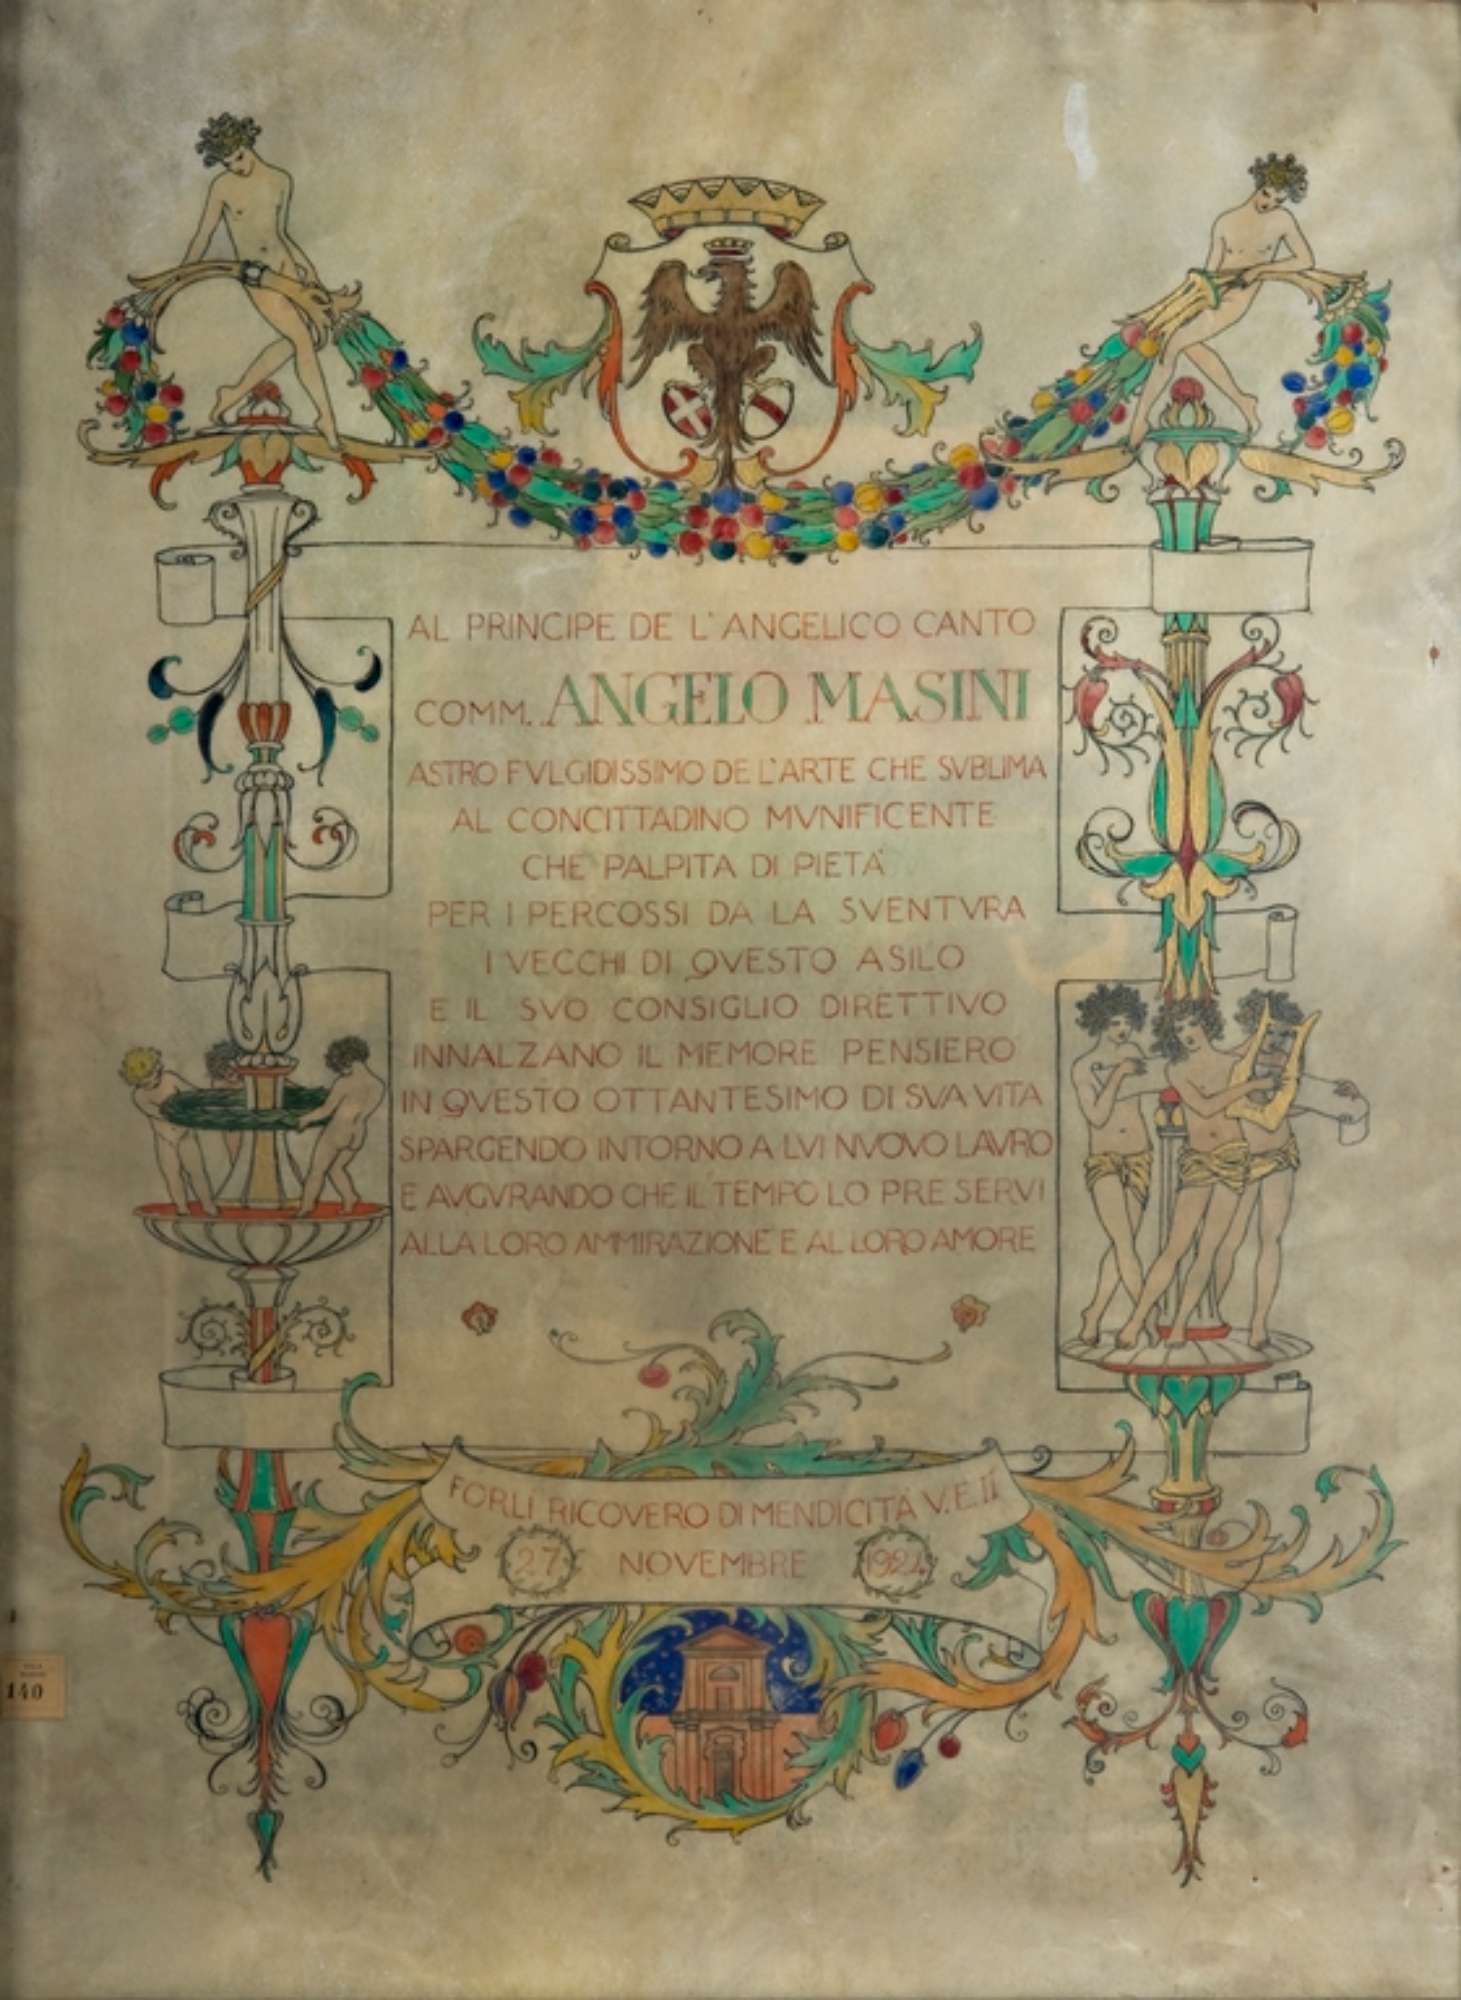 AL PRINCIPE DE L'ANGELICO CANTO
COMM. ANGELO MASINI
ASTRO FVLGIDISSIMO DE L'ARTE CHE SVBLIMA
AL CONCITTADINO MVNIFICENTE
CHE PALPITA DI PIETA'
PER I PERCOSSI DA LA SVENTVRA
I VECCHI DI QVESTO ASILO
E IL SVO CONSIGLIO DIRETTIVO
INNALZANO IL MEMORE PENSIERO
IN QVESTO OTTANTESIMO DI SVA VITA
SPARGENDO INTORNO A LVI NVOVO LAVRO
E AVGVRANDO CHE IL TEMPO LO PRESERVI
ALLA LORO AMMIRAZIONE E AL LORO AMORE
FORLÌ RICOVERO DI MENDICITÀ V. E. II
27 NOVEMBRE 1924
140